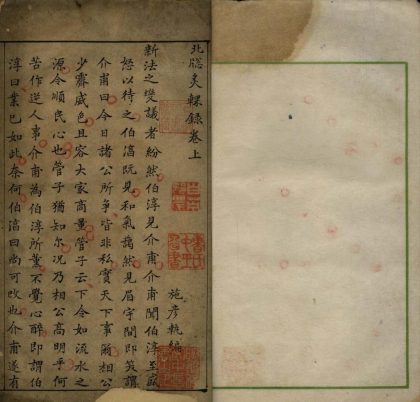 北牕炙輠錄卷上
施彥執編
新法之變議者紛然伯淳見介甫介甫聞伯淳至盛
怒以待之伯淳既見和氣藹然見眉宇間即笑謂
介甫曰今日諸公所爭皆非私實天下事爾相公
少霽威色且容大家商量管子云下令如流水之
源令順民心也管子猶知爾況乃相公高明乎何
苦作逆人事介甫為伯淳所薰不覺心醉即謂伯
淳曰業已如此奈何伯淳曰尚可改也介甫遂有